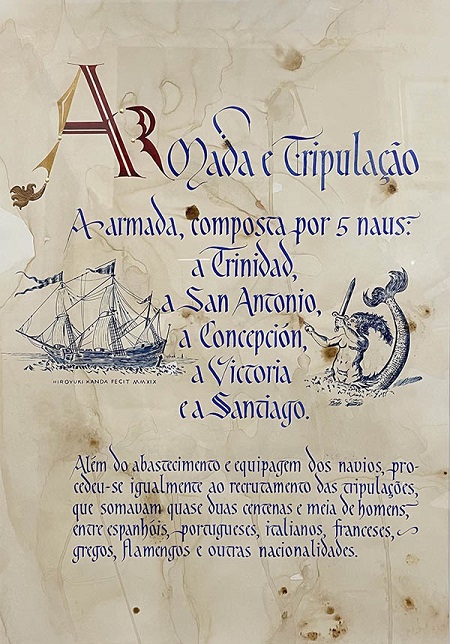 Armada e Tripulação
A armada, composta por 5 naus:
a Trinidad,
a San Antonio,
a Concepción,
a Victoria
e a Santiago.
HIROYUKI KANDA FECIT MMXIX
Além do abastecimento e equipagem dos navios, pro-
cedeu-se igualmente ao recrutamento das tripulações,
que somavam quase duas centenas e meia de homens,
entre espanhóis, portugueses, italianos, franceses,
gregos, flamengos e outras nacionalidades.